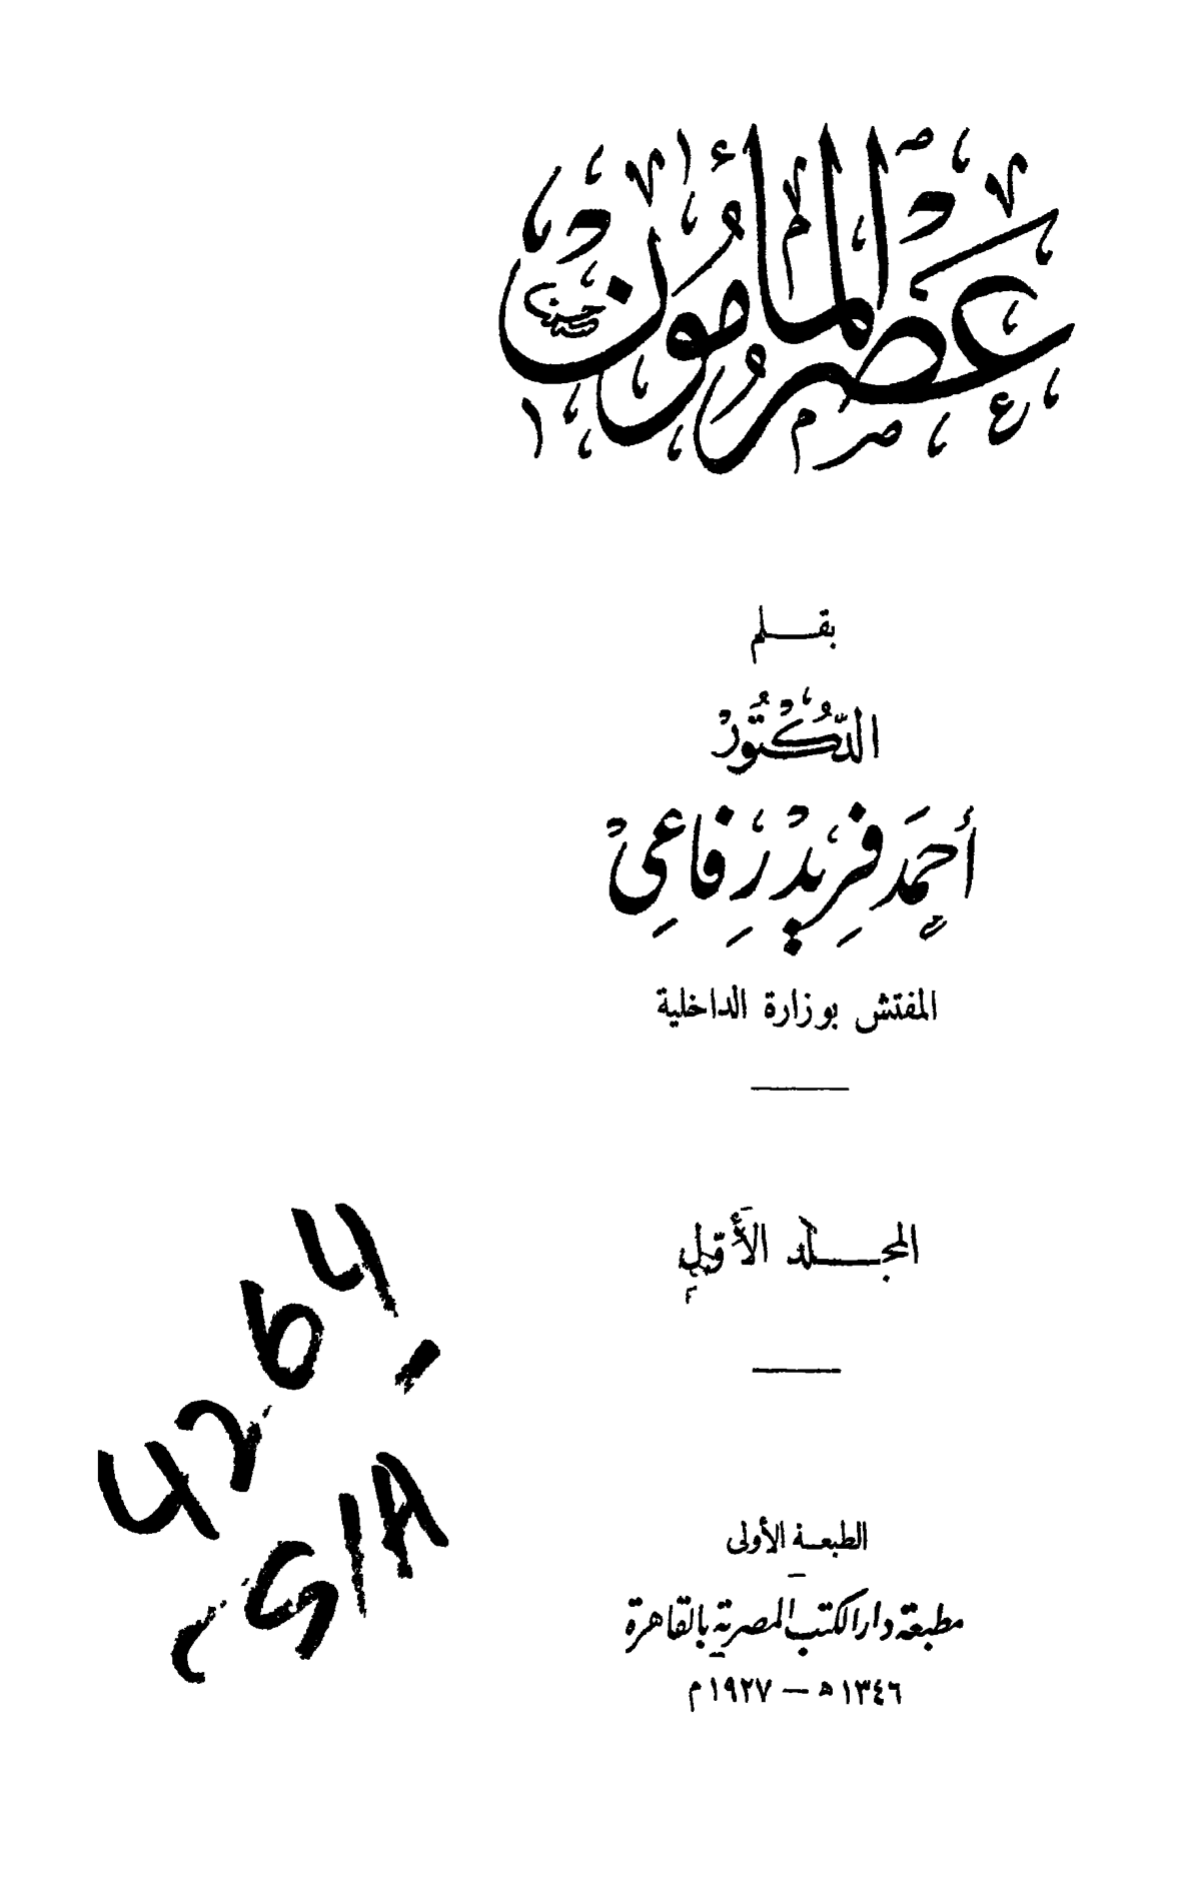 عصر المأمون
بقلم
الدُّكْتُور
أَحْمَد فَرِيدْ رِفَاعِى
المفتش بوزارة الداخلية
المجلد الأوّل
الطبعة الأولى
مطبعة دار الكتب المصرية بالقاهرة
١٣٤٦ھ – ١٩٢٧م
4264